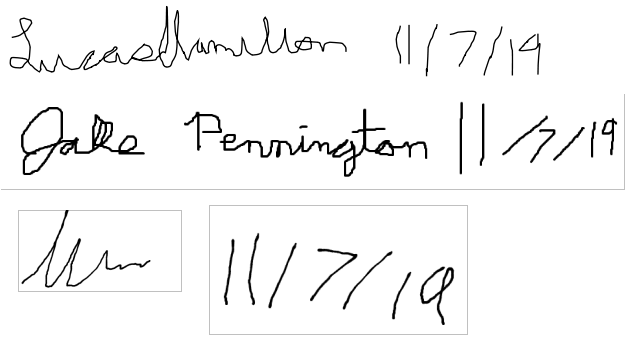 Lucas Hamilton 11/7/19
Jake Pennington 11/7/19
11/7/19